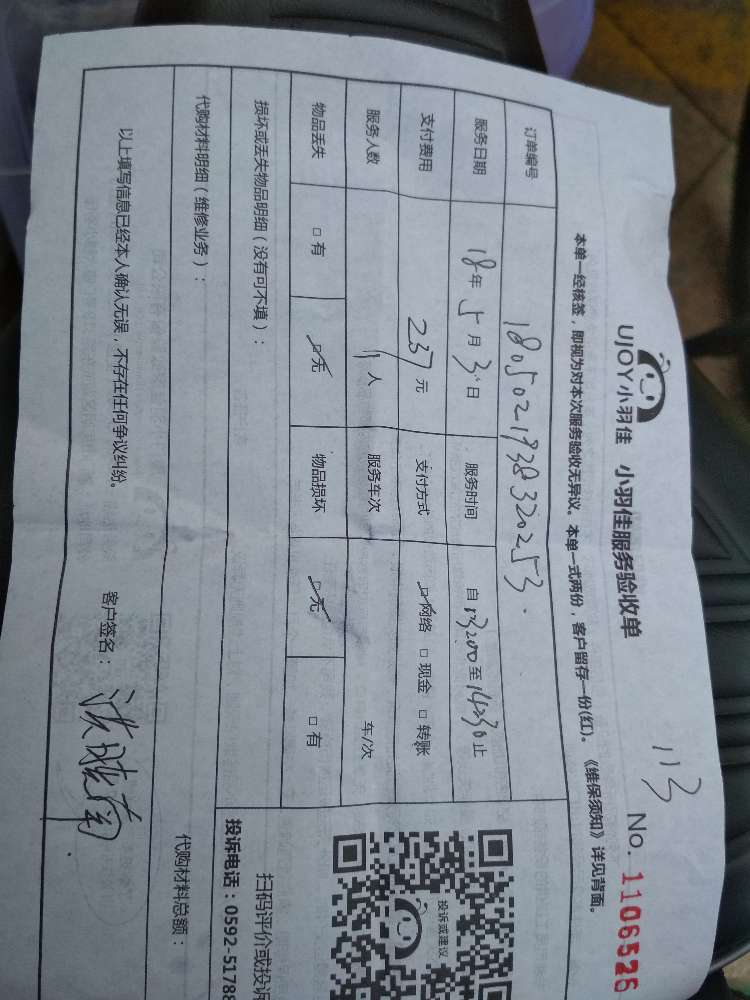 113
UJOY小羽佳 小羽佳服务验收单 No. 1106526
本单一经核签，即视为对本次服务验收无异议。本单一式两份，客户留存一份(红)。《维保须知》详见背面。
订单编号 1805021938320253
服务日期 18年5月3日 服务时间 自13:00至14:30止
支付费用 237元 支付方式 ☑网络 □现金 □转账
服务人数 人 服务车次 车/次
物品丢失 □有 ☑无 物品损坏 ☑无 □有
损坏或丢失物品明细（没有可不填）：
代购材料明细（维修业务）： 代购材料总额：
以上填写信息已经本人确认无误，不存在任何争议纠纷。 客户签名：
投诉或建议
扫码评价或投诉
投诉电话：0592-51788